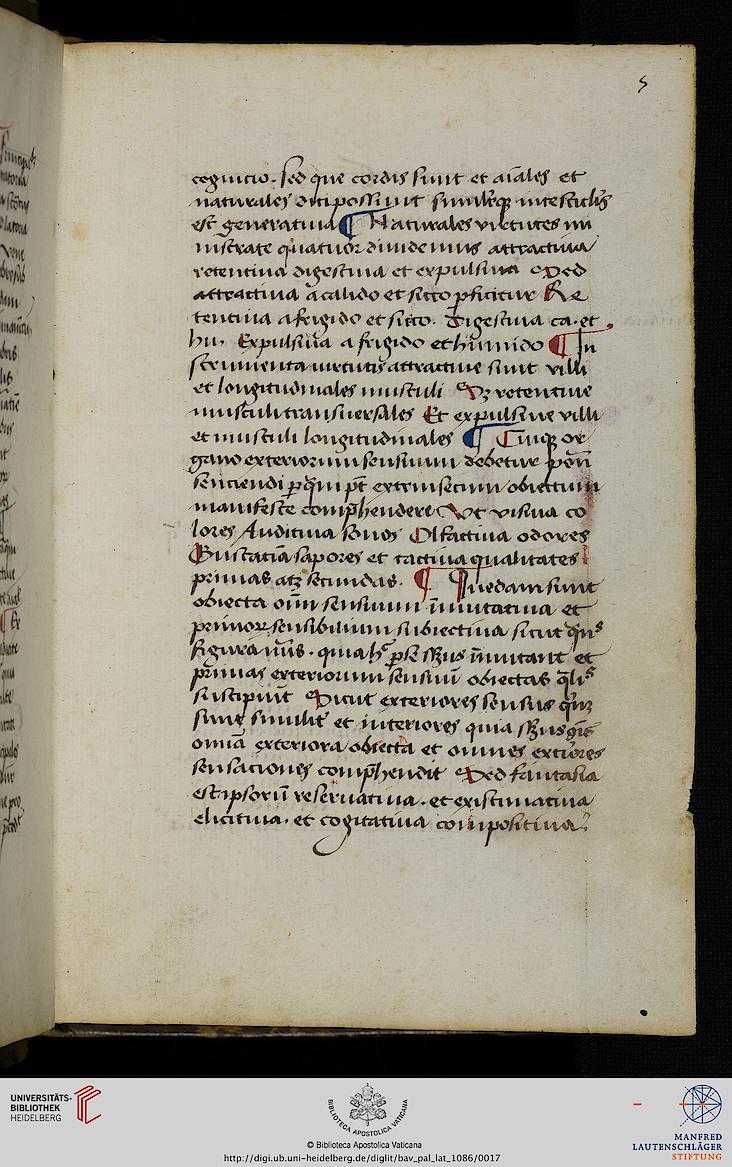 5
cognicio. sed que cordis sunt et aīales et
naturales dici possunt similiterq̨ in testiculis
est generatiua ¶ Naturales virtutes mi
nistrate quatuor diuidemus attractiua
retentiua digestiua et expulsiua Sed
attractiua a calido et sicco p̲ficitur Re
tentiua a frigido et sicco. Digestiua ca. et
hu. Expulsiua a frigido et humido ¶ In
strumenta uirtutis attractiue sunt villi
et longitudinales musculi Sz retentiue
musculi transuersales Et expulsiue villi
et musculi longitudinales ¶ Cuiq̨ or
gano exteriorum sensuum debetur
senciendi p̲ pt̄ extrinsecum obiectum
manifeste comp̄hendere Vt visiua co
lores Auditiua sonos Olfactiua odores
Gustatiua sapores et tactiua qualitates
primas atz secundas. ¶ Quedam sunt
obiecta oīm sensuum īmutatiua et
sensibilium subiectiua sicut
figura quia p̲ se īmutant et
primas exteriorum sensuum obiectas
suscipiunt Sicut exteriores sensus
sunt similit̄ et interiores quia
omnia exteriora obiecta et omnes exteriores
sensaciones comp̄hendit Sed fantasia
est ipsorū reseruatiua. et existimatiua
elicitiua. et cogitatiua compositiua
UNIVERSITÄTS-
BIBLIOTHEK
HEIDELBERG
BIBLIOTECA APOSTOLICA VATICANA
© Biblioteca Apostolica Vaticana
http://digi.ub.uni-heidelberg.de/diglit/bav_pal_lat_1086/0017
MANFRED
LAUTENSCHLÄGER
STIFTUNG